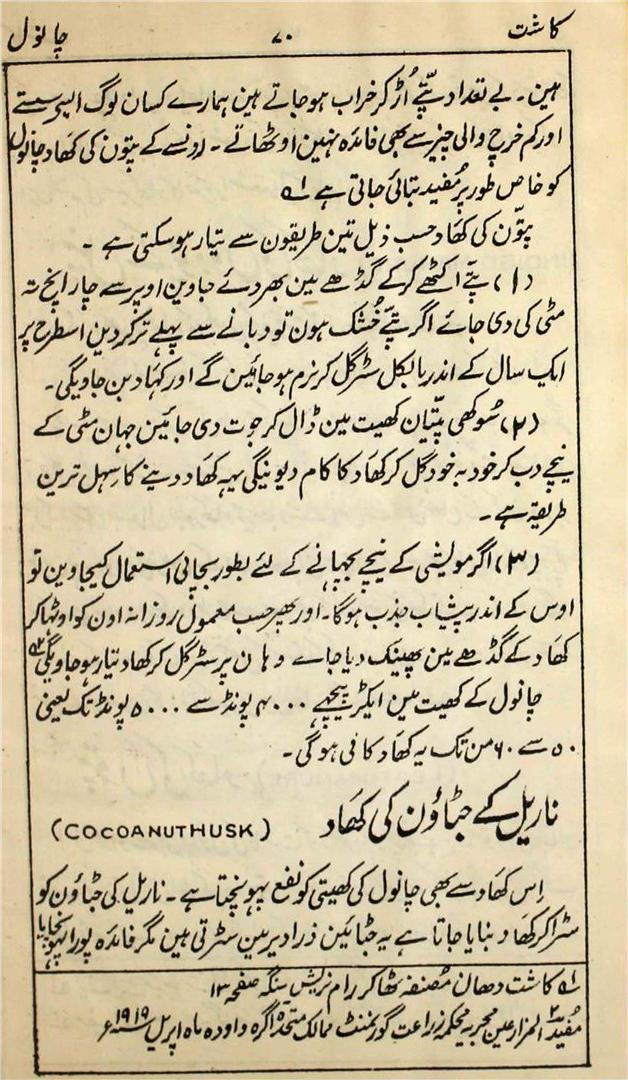 کاشت ۷۰ چانول
ہین۔ بے تعداد پتّے اُڑ کر خراب ہو جاتے ہین ہمارے کسان لوگ ایسی سستے
اور کم خرچ والی چیز سے بھی فائدہ نہین اوٹھاتے۔ اروسے کے پتون کی کھاد چانول
کو خاص طور پر مُفید بتائی جاتی ہے لہ
پتّون کی کھاد حسب ذیل تین طریقون سے تیار ہو سکتی ہے۔
(۱) پتّے اکٹھے کرکے گڈھے مین بھر دئے جاوین اوپر سے چار انچ تہ
مٹی کی دی جائے اگر پتّے خُشک ہون تو دبانے سے پہلے تر کر دین اسطرح پر
ایک سال کے اندر بالکل سٹر گل کر نرم ہو جائین گے اور کہاد بن جاویگی۔
(۲) سُوکھی پتّیان کھیت مین ڈال کر جوت دی جائین جہان مٹی کے
نیچے دب کر خود بہ خود گل کر کھاد کا کام دیونیگی یہہ کھاد دینے کا سہل ترین
طریقہ ہے۔
(۳) اگر مویشی کے نیچے بچھانے کے لئے بطور بچالی استعمال کیجاوین تو
اوس کے اندر پیشاب جذب ہوگا۔ اور پھر حسب معمول روزانہ اون کو اوٹھا کر
کھاد کے گڈھے مین پھینک دیا جاے وہان پر سٹر گل کر کھاد تیار ہو جاویگی ۲ہ
چانول کے کھیت مین ایکڑ پیچھے ۴۰۰۰ پونڈ سے ۵۰۰۰ پونڈ تک یعنی
۵۰ سے ۶۰ من تک یہ کھاد کافی ہوگی۔
ناریل کے جٹاؤن کی کھاد (COCOANUTHUSK)
اِس کھاد سے بھی چانول کی کھیتی کو نفع پہونچتا ہے۔ ناریل کی جٹاؤن کو
سٹرا کر کھاد بنایا جاتا ہے یہ جٹائین ذرا دیر مین سٹرتی ہین مگر فائدہ پورا پہونچایا
لہ کاشت دھان مُصنفہ ٹھاکر رام نریش سنگہ صفحہ ۱۳
۲ہ مُفید المزارعین مجریہ محکمہ زراعت گورنمنٹ ممالک متحدہ اگرہ و اودہ ماہ اپریل ۱۹۱۹ء